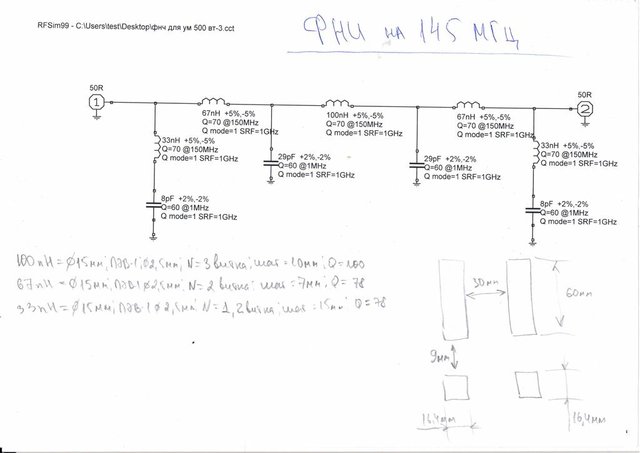 RFSim99 - C:\Users\test\Desktop\фнч для ум 500 вт-3.cct
ФНЧ на 145 МГЦ
50R
1
67nH +5%,-5%
Q=70 @150MHz
Q mode=1 SRF=1GHz
100nH +5%,-5%
Q=70 @150MHz
Q mode=1 SRF=1GHz
67nH +5%,-5%
Q=70 @150MHz
Q mode=1 SRF=1GHz
50R
2
33nH +5%,-5%
Q=70 @150MHz
Q mode=1 SRF=1GHz
29pF +2%,-2%
Q=60 @1MHz
Q mode=1 SRF=1GHz
29pF +2%,-2%
Q=60 @1MHz
Q mode=1 SRF=1GHz
33nH +5%,-5%
Q=70 @150MHz
Q mode=1 SRF=1GHz
8pF +2%,-2%
Q=60 @1MHz
Q mode=1 SRF=1GHz
8pF +2%,-2%
Q=60 @1MHz
Q mode=1 SRF=1GHz
100nH = Ø15мм; ПЭВ-1 Ø2,5мм; N=3 витка; шаг=10мм; Q=100
67nH = Ø15мм; ПЭВ-1 Ø2,5мм; N=2 витка; шаг=7мм; Q=78
33nH = Ø15мм; ПЭВ-1 Ø2,5мм; N=1,2 витка; шаг=15мм; Q=78
30мм
60мм
9мм
16,4мм
16,4мм